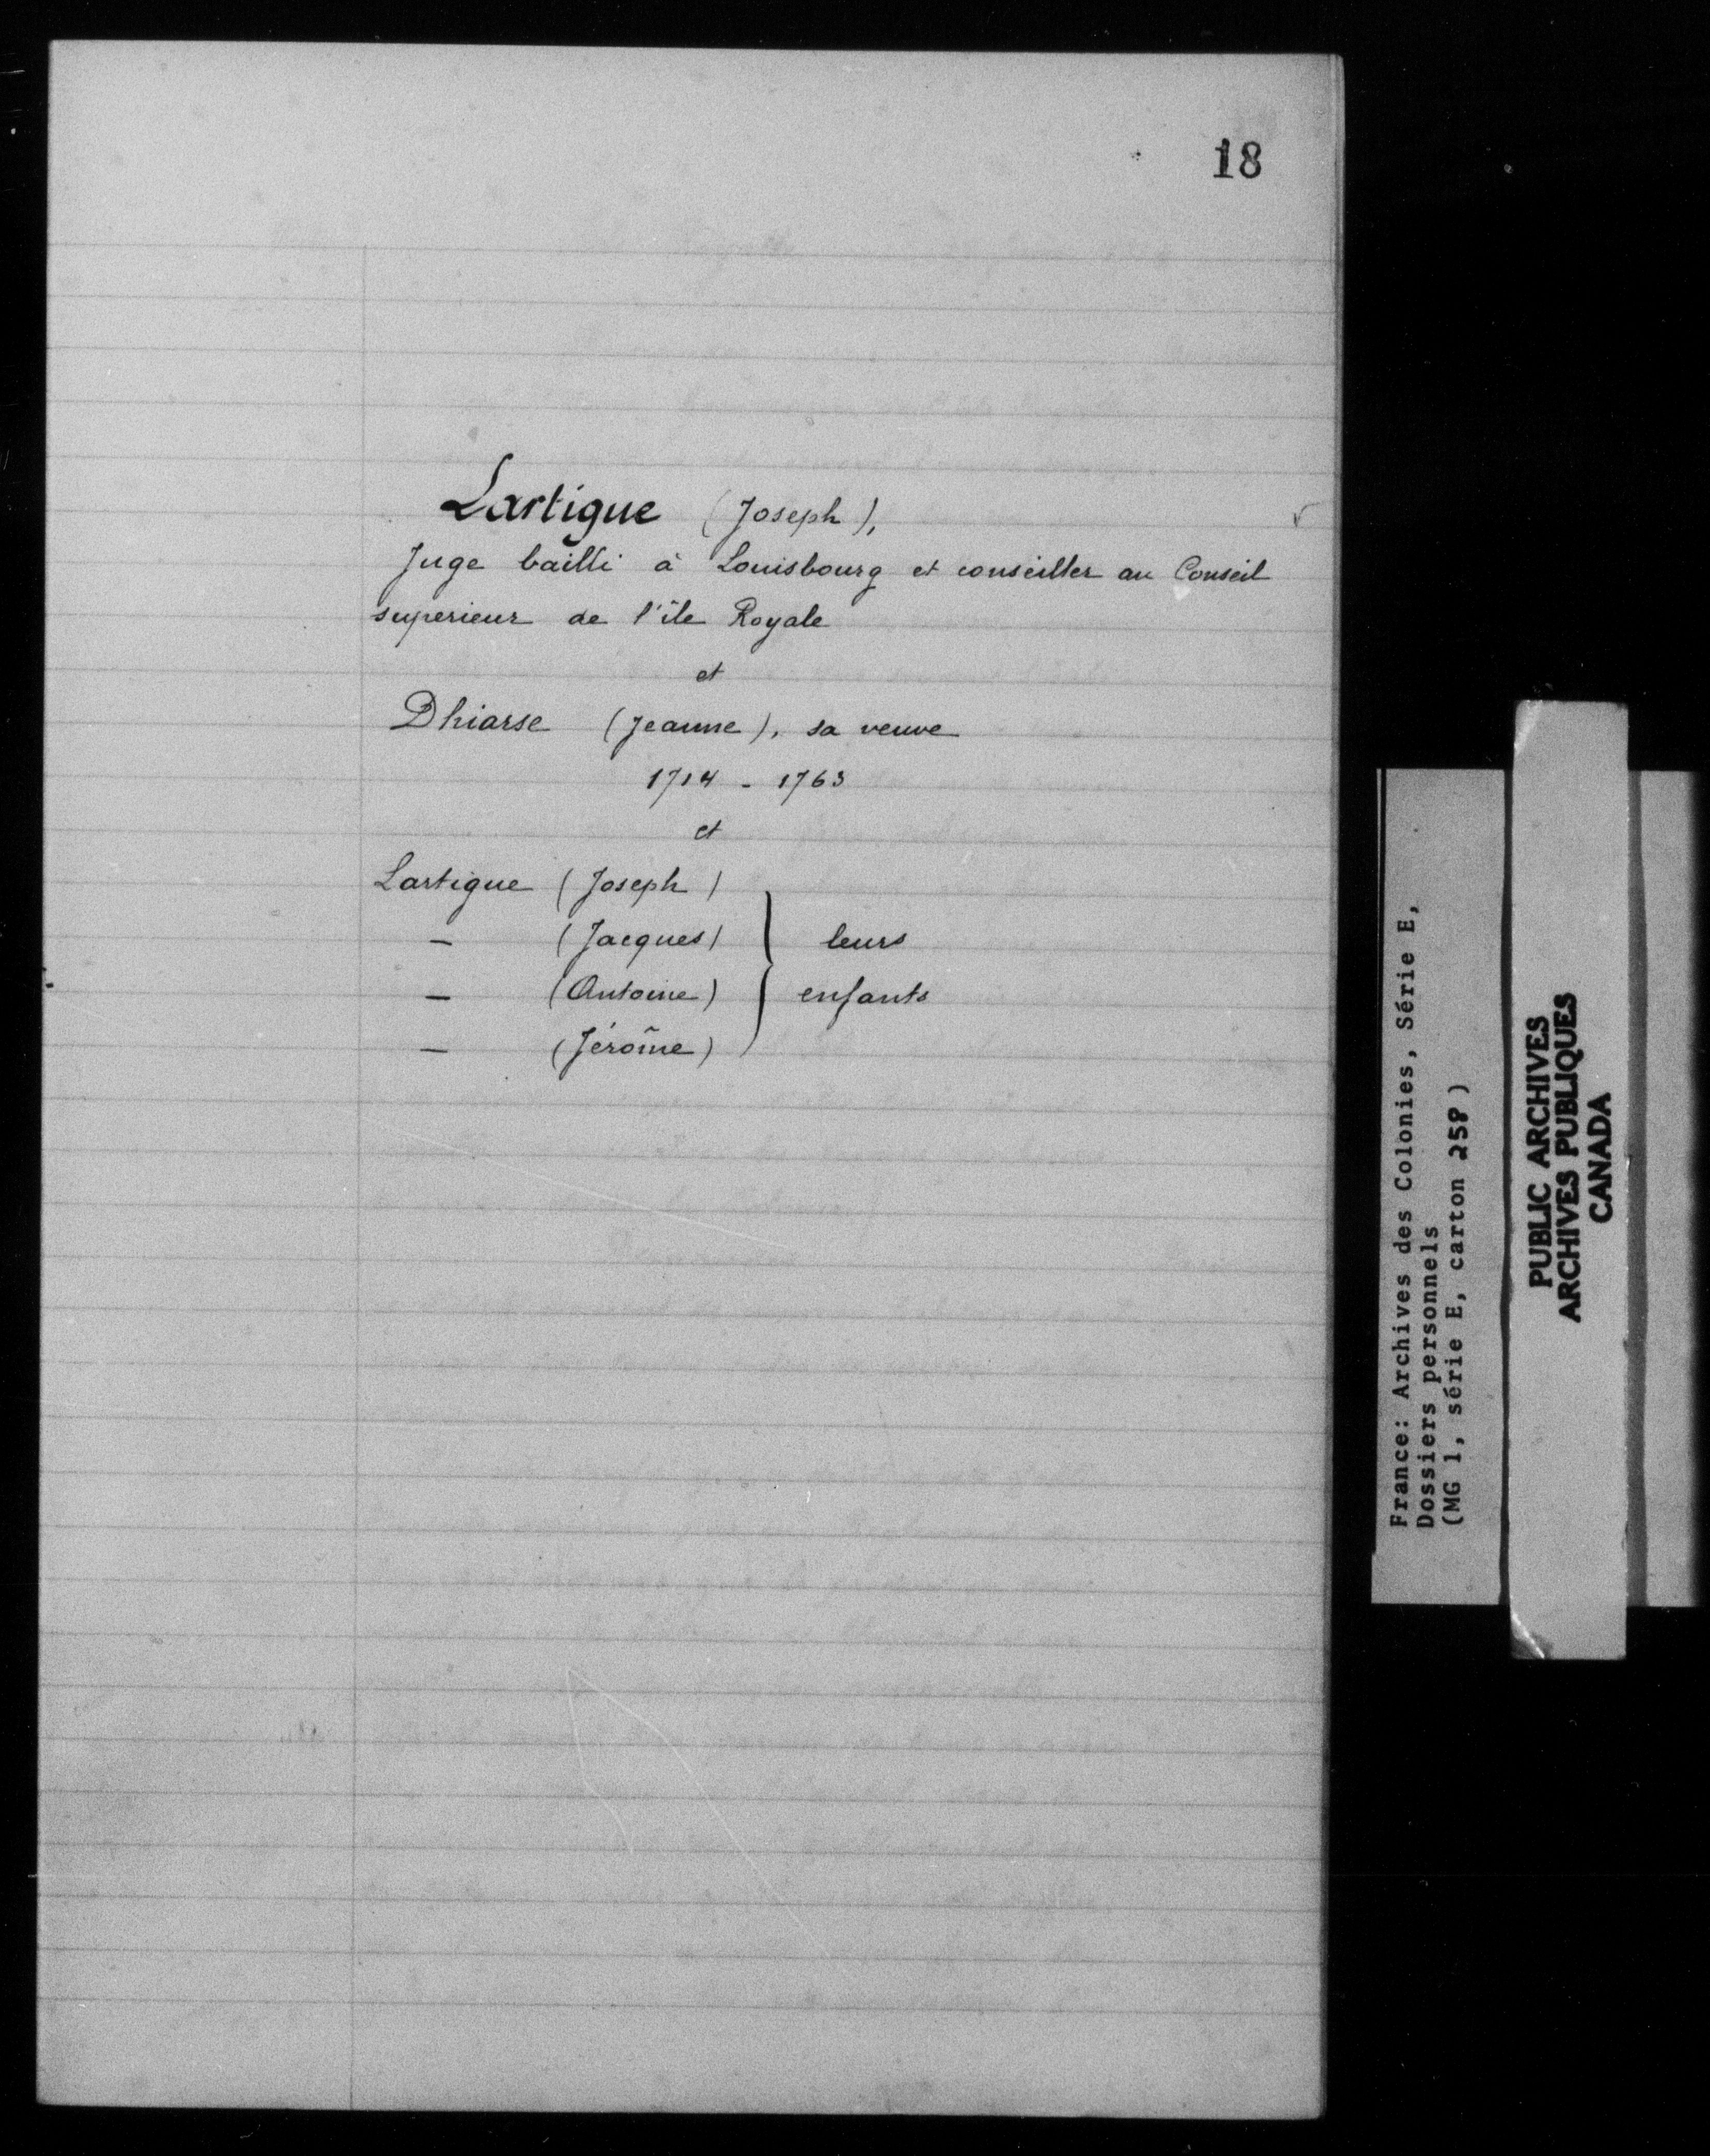 18
Lartigue (Joseph),
Juge bailli à Louisbourg et conseiller au Conseil
superieur de l'île Royale
et
Dhiarse (Jeanne), sa veuve
1714 - 1763
et
Lartigue (Joseph)
— (Jacques) leurs
— (Antoine) enfants
— (Jérôme)
France: Archives des Colonies, Série E,
Dossiers personnels
(MG 1, série E, carton 258)
PUBLIC ARCHIVES
ARCHIVES PUBLIQUES
CANADA